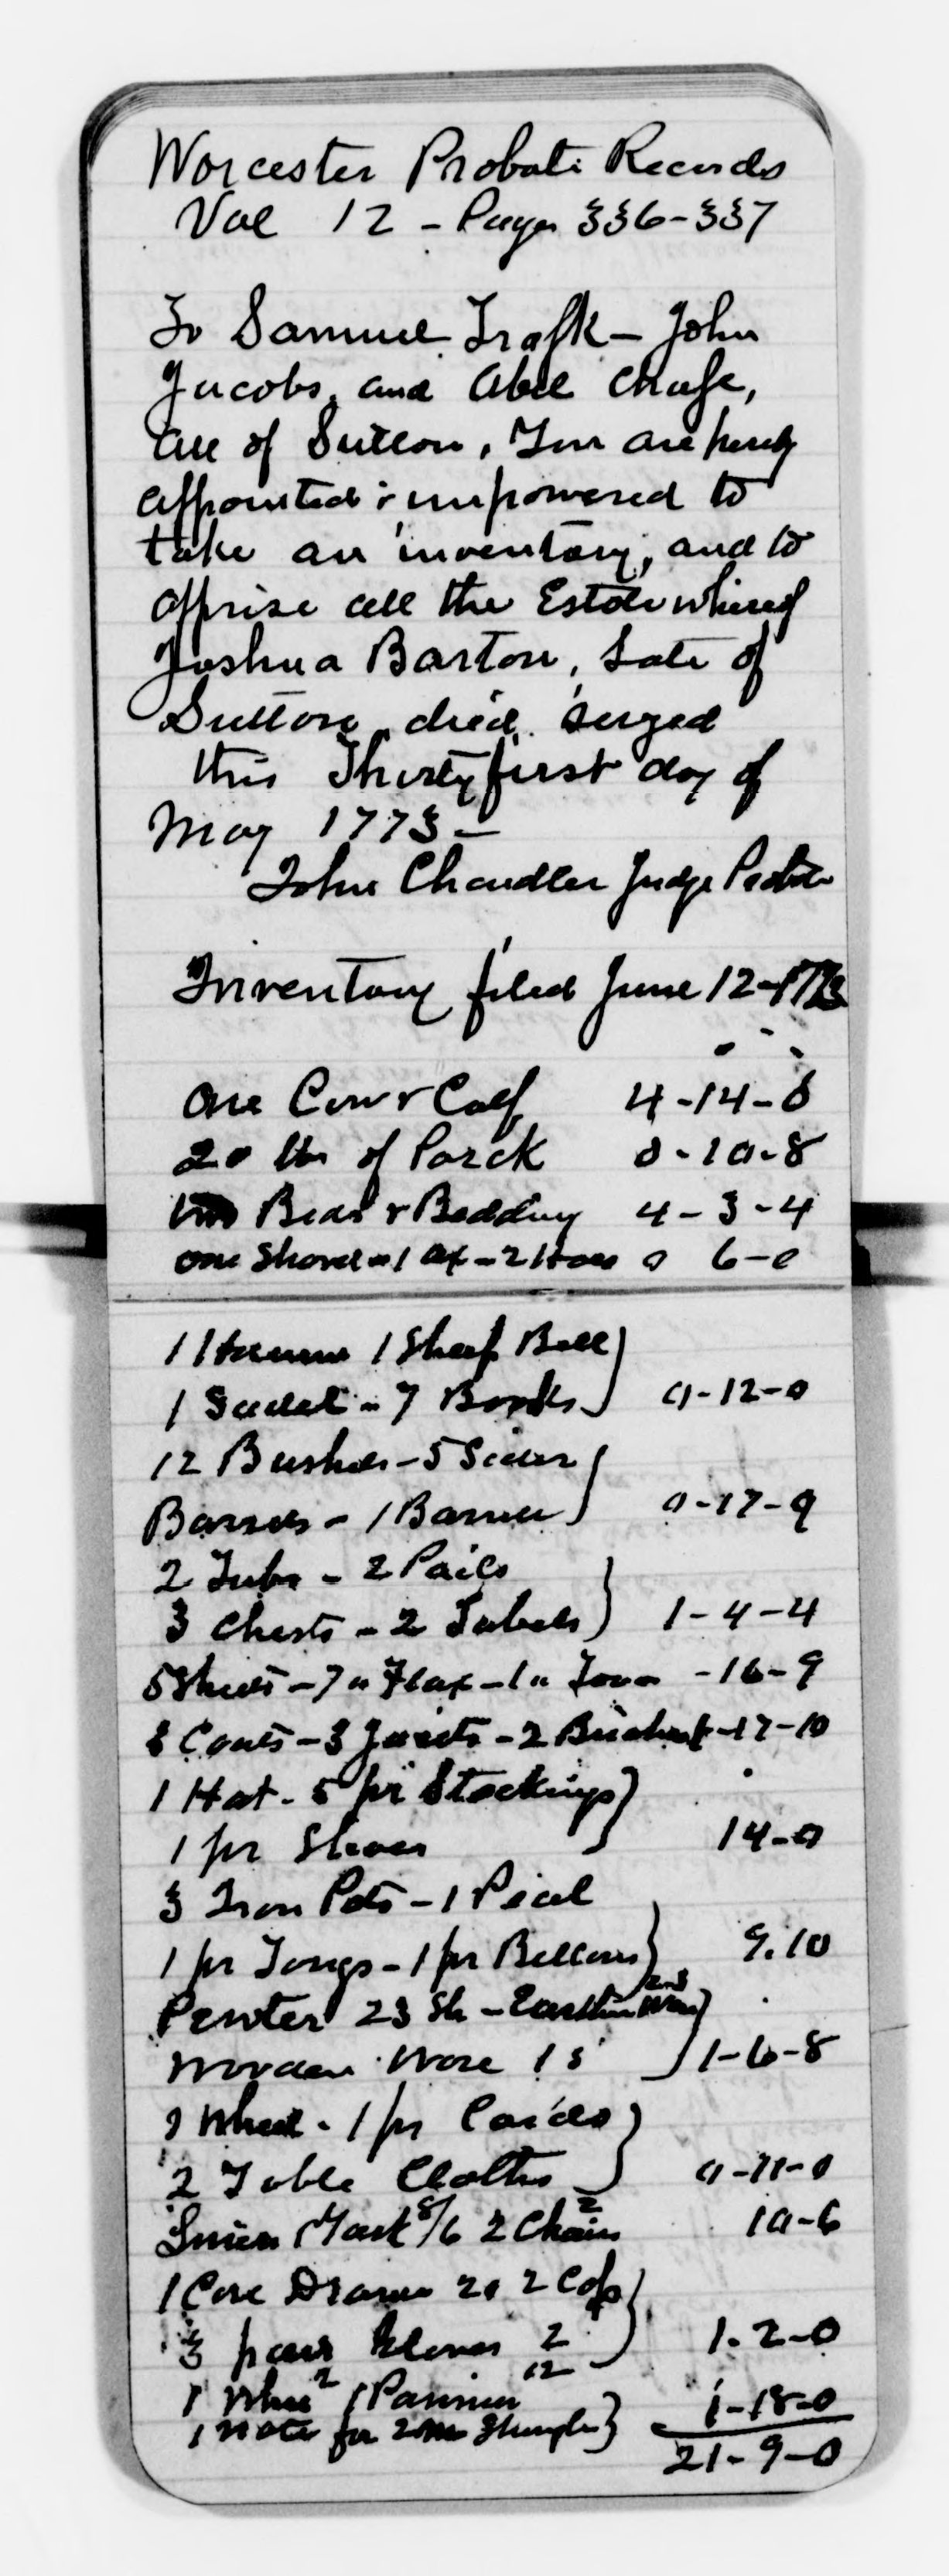 Worcester Probate Records
Vol 12 - Pages 336-337
To Samuel Trask - John
Jacobs, and Abel Chase,
all of Sutton, You are hereby
appointed & impowered to
take an inventory, and to
apprise all the Estate whereof
Joshua Barton, Late of
Sutton, died seized
this Thirty first day of
May 1773 -
John Chandler Judge Probate
Inventory filed June 12-1773
One Cow & Calf 4-14-0
20 lbs of Porck 0-10-8
two Beds & Bedding 4-3-4
one Shovel - 1 ax - 2 Hoes 0 6-0
1 1 Sheep Bell
1 Sadel - 7 Books 0-12-0
12 Bushels - 5 Sider
Barrels - 1 Barrel 0-17-9
2 Tubs - 2 Pails
3 Chests - 2 Tabels 1-4-4
5 Sheets - 7 " Flax - 1 " Tow - 16-9
3 Coats - 3 - 2 -17-10
1 Hat - 5 pr Stockings
1 pr Shoes 14-0
3 Iron Pots - 1 Peal
1 pr Tongs - 1 pr Bellows 9.10
Pewter 23 Sh - Earthen Ware 2-3
Wooden Ware 15 1-6-8
2 Wheel - 1 pr Cards
2 Table Cloths 0-11-0
8/6 2 Chairs 2 10-6
1 20 2
3 pair 2 1-2-0
1 1 12 1-18-0
1 Note for Shingles
21-9-0